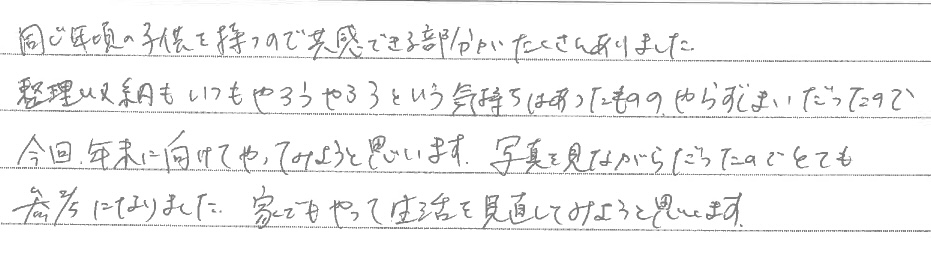 同じ年頃の子供を持つので共感できる部分がたくさんありました.
整理収納もいつもやろうやろうという気持ちはあったものの、やらずじまいだったので
今回、年末に向けてやってみようと思います. 写真を見ながらだったのでとても
参考になりました. 家でもやって生活を見直してみようと思います.